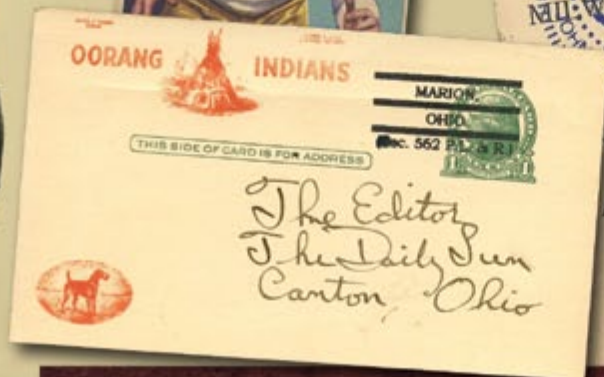 OORANG INDIANS
MARION,
OHIO.
(Sec. 562 P.L. & R.)
1 1
THIS SIDE OF CARD IS FOR ADDRESS
The Editor
The Daily Sun
Canton, Ohio